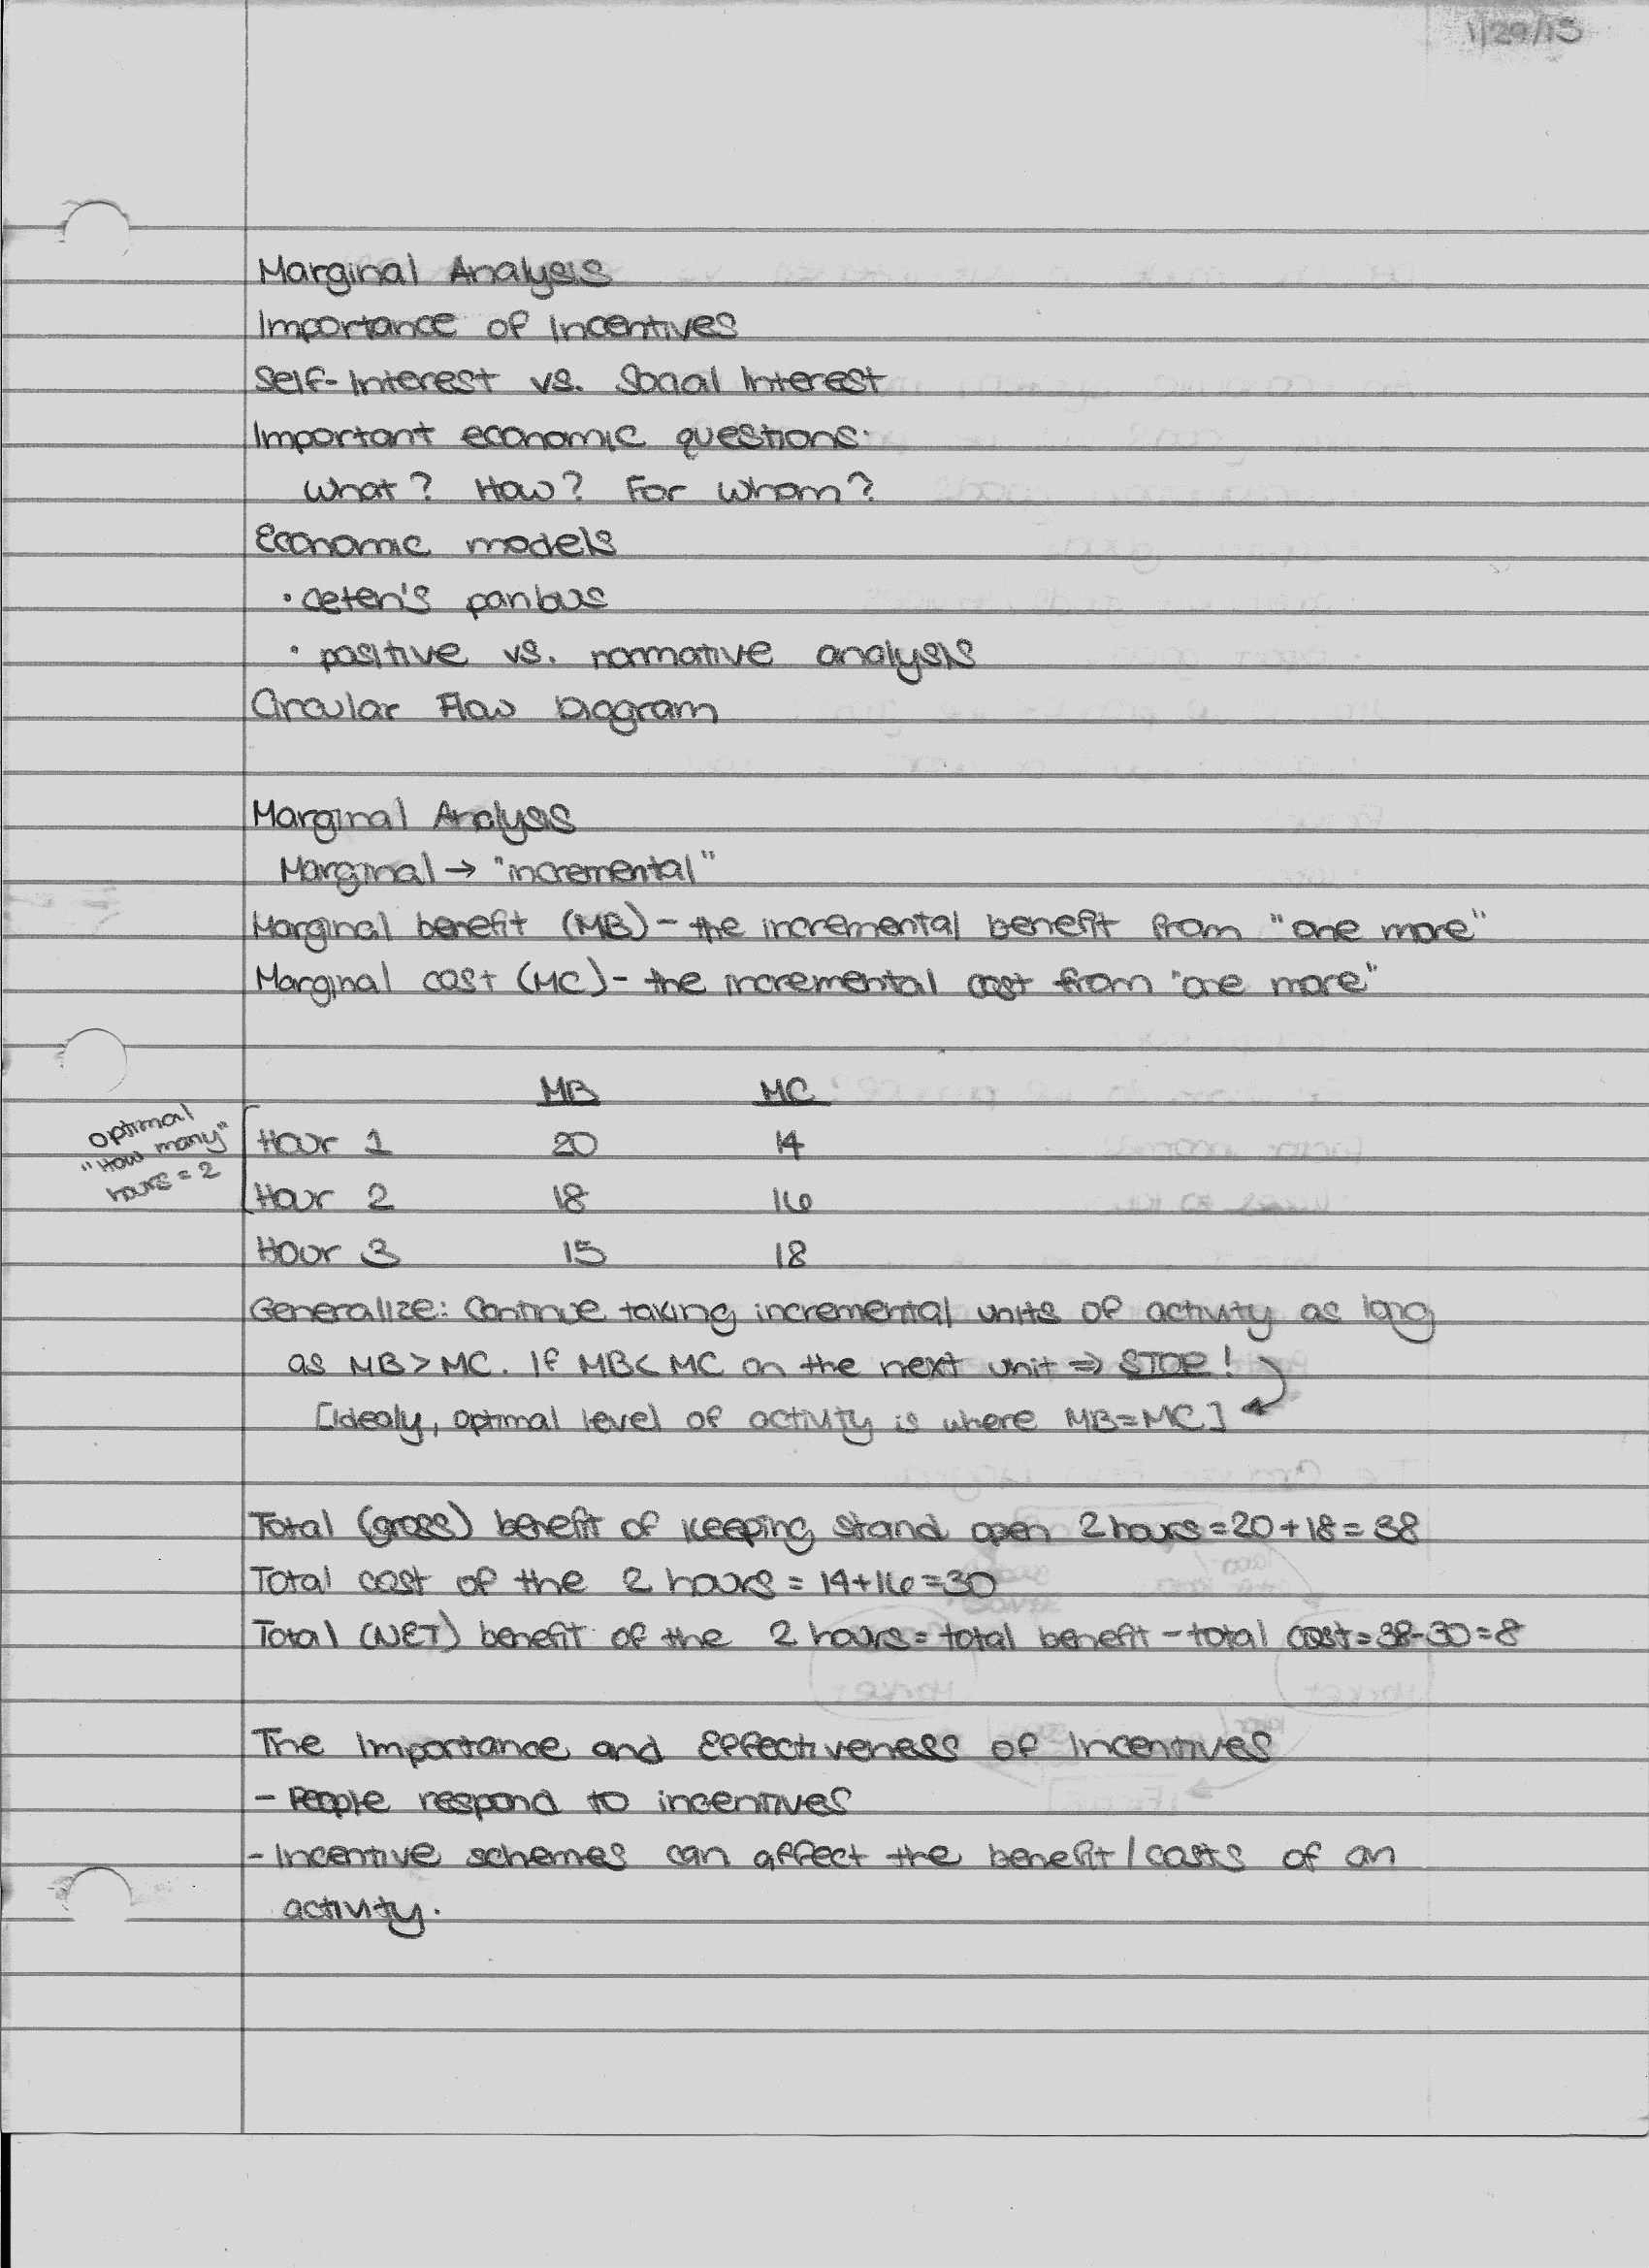 1/29/15
Marginal Analysis
Importance of Incentives
Self-Interest vs. Social Interest
Important economic questions:
What? How? For whom?
Economic models
• ceteri's paribus
• positive vs. normative analysis
Circular Flow Diagram
Marginal Analysis
Marginal → "incremental"
Marginal benefit (MB) - the incremental benefit from "one more"
Marginal cost (MC) - the incremental cost from "one more"
MB MC
optimal
"How many"
hours = 2
Hour 1 20 14
Hour 2 18 16
Hour 3 15 18
Generalize: Continue taking incremental units of activity as long
as MB > MC. If MB < MC on the next unit ⇒ STOP!
[Idealy, optimal level of activity is where MB = MC]
Total (gross) benefit of keeping stand open 2 hours = 20 + 18 = 38
Total cost of the 2 hours = 14 + 16 = 30
Total (NET) benefit of the 2 hours = total benefit - total cost = 38 - 30 = 8
The Importance and Effectiveness of Incentives
- People respond to incentives
- Incentive schemes can affect the benefit/costs of an
activity.